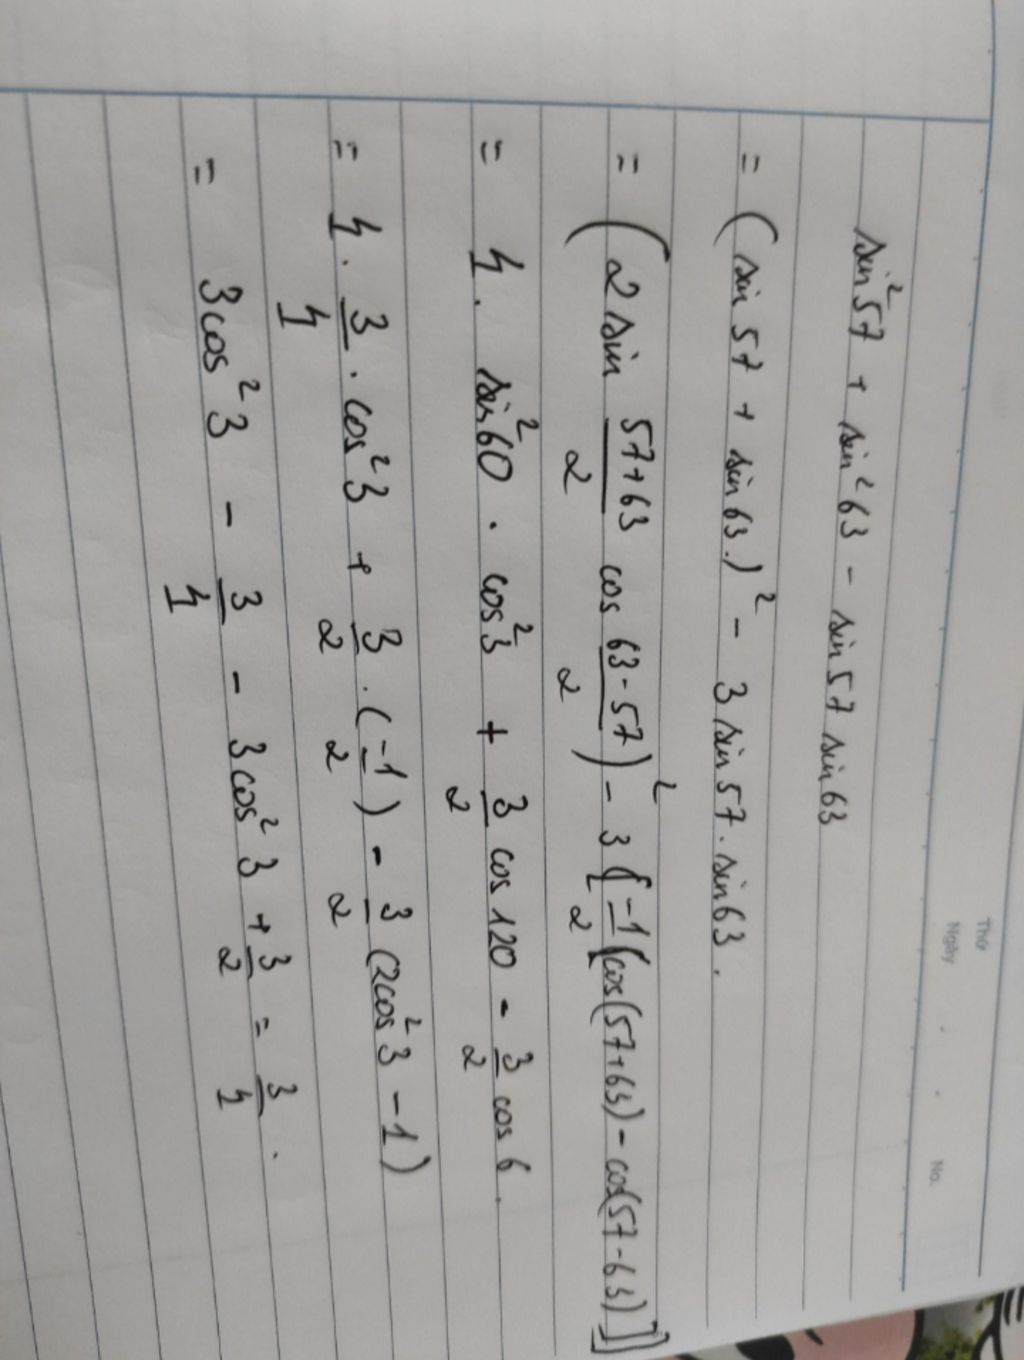 Thứ
Ngày . . No.
sin²57 + sin²63 - sin57 sin63
= (sin 57 + sin 63.)² - 3 sin 57 . sin63 .
= (2 sin (57+63)/2 cos (63-57)/2)² - 3 {[-1/2 [cos(57+63) - cos(57-63)]]
= 4 . sin²60 . cos²3 + 3/2 cos 120 - 3/2 cos 6 .
= 4 . 3/4 . cos²3 + 3/2 . (-1/2) - 3/2 (2cos²3 - 1)
= 3cos²3 - 3/4 - 3cos²3 + 3/2 = 3/4 .